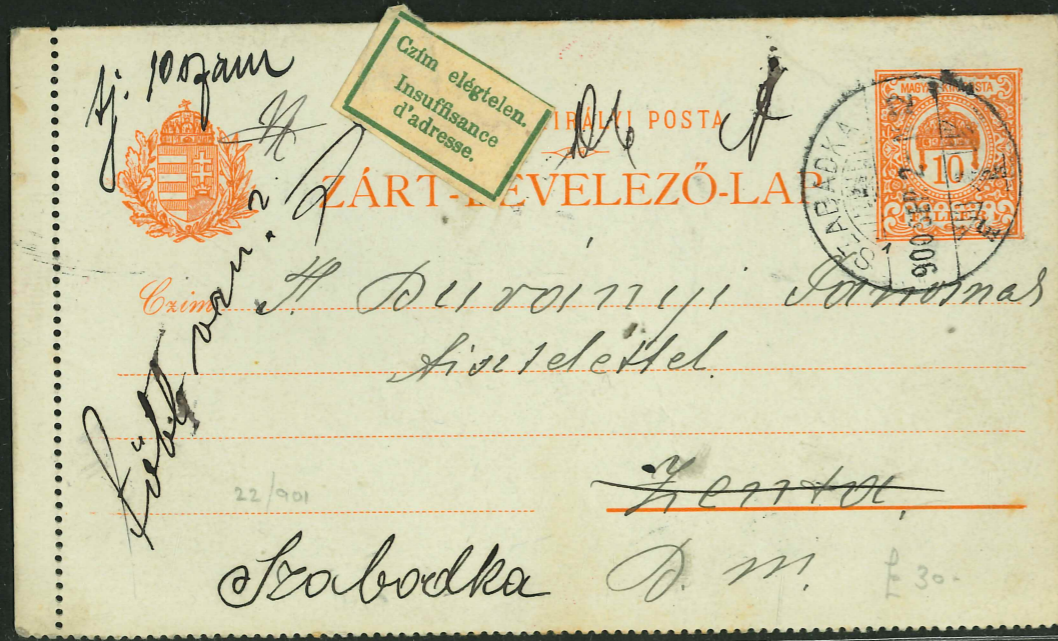 Uj. 10 szám
Czím elégtelen.
Insuffisance
d'adresse.
KIRÁLYI POSTA
ZÁRT-LEVELEZŐ-LAP
MAGYAR KIR. POSTA
10
FILLÉR
SZABADKA
900 SEP 2
Czim
T. Durányi Jánosnak
tisztelettel
Zenta,
22/901
Szabadka
D. m.
30.-